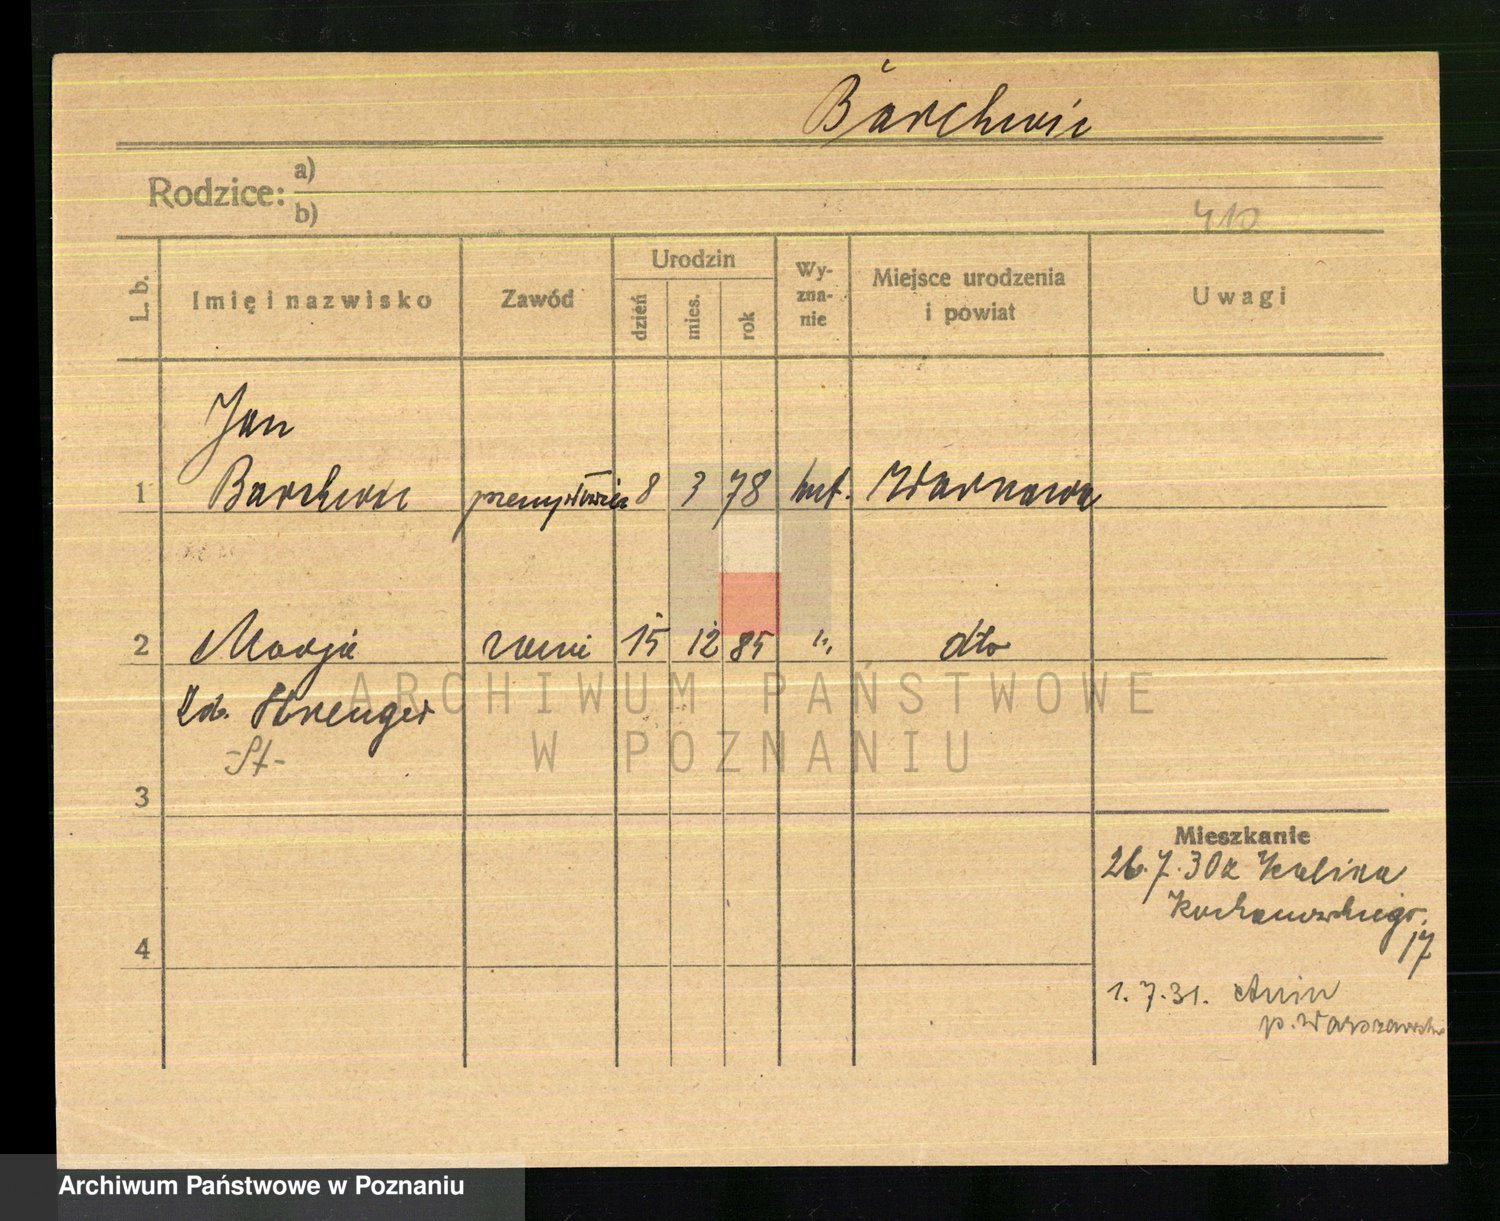 Barchwic
Rodzice: a)
b)
410
L. b. Imię i nazwisko Zawód Urodzin dzień mies. rok Wy-zna-nie Miejsce urodzenia i powiat Uwagi
Jan
1 Barchwic przemysłowiec 8 3 78 Warszawa
2 Marja 15 12 85 " dto
Strenger
-St-
3
Mieszkanie
26.7.30 z
17
4
1.7.31. Anin
p. Warszawski
ARCHIWUM PAŃSTWOWE
W POZNANIU
Archiwum Państwowe w Poznaniu